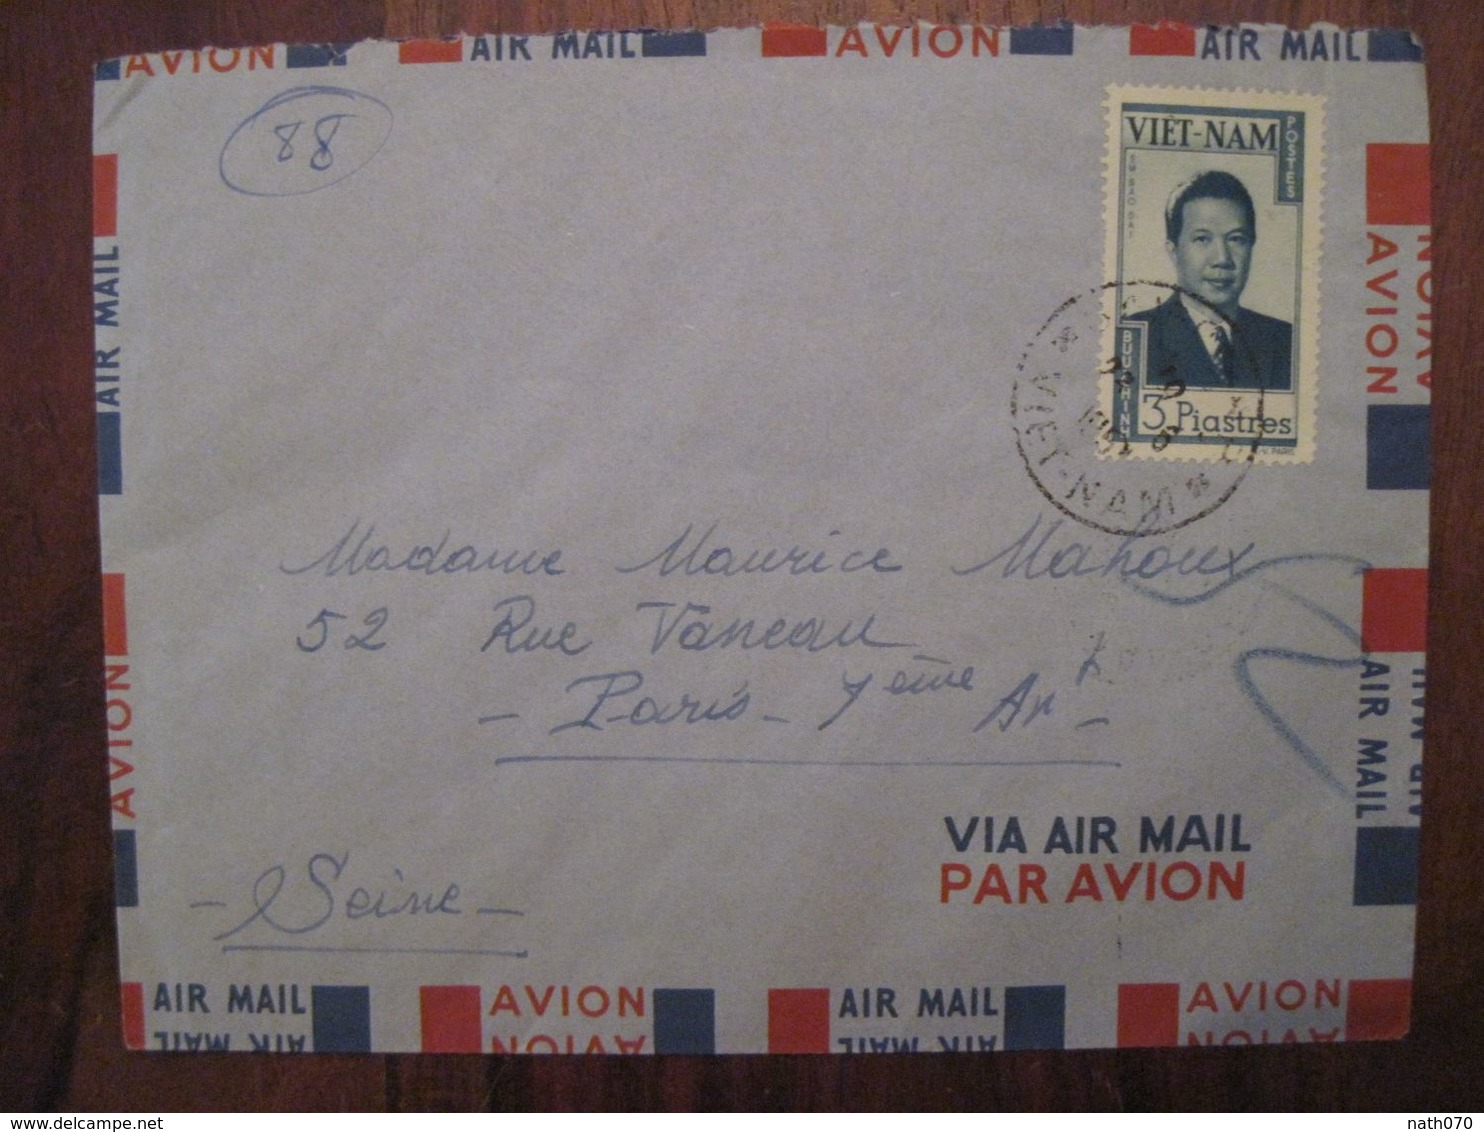 AVION AIR MAIL AVION AIR MAIL
88
VIÊT-NAM
POSTES
S.M BAO DAI
BUU CHINH
3 Piastres
VIET-NAM
AIR MAIL
AVION
AVION
AVION
AIR MAIL
AIR MAIL
Madame Maurice Mahoux
52 Rue Vaneau
- Paris - 7ème Arr -
- Seine -
VIA AIR MAIL
PAR AVION
AIR MAIL AVION AIR MAIL AVION
AIR MAIL AVION AIR MAIL AVION
nath070